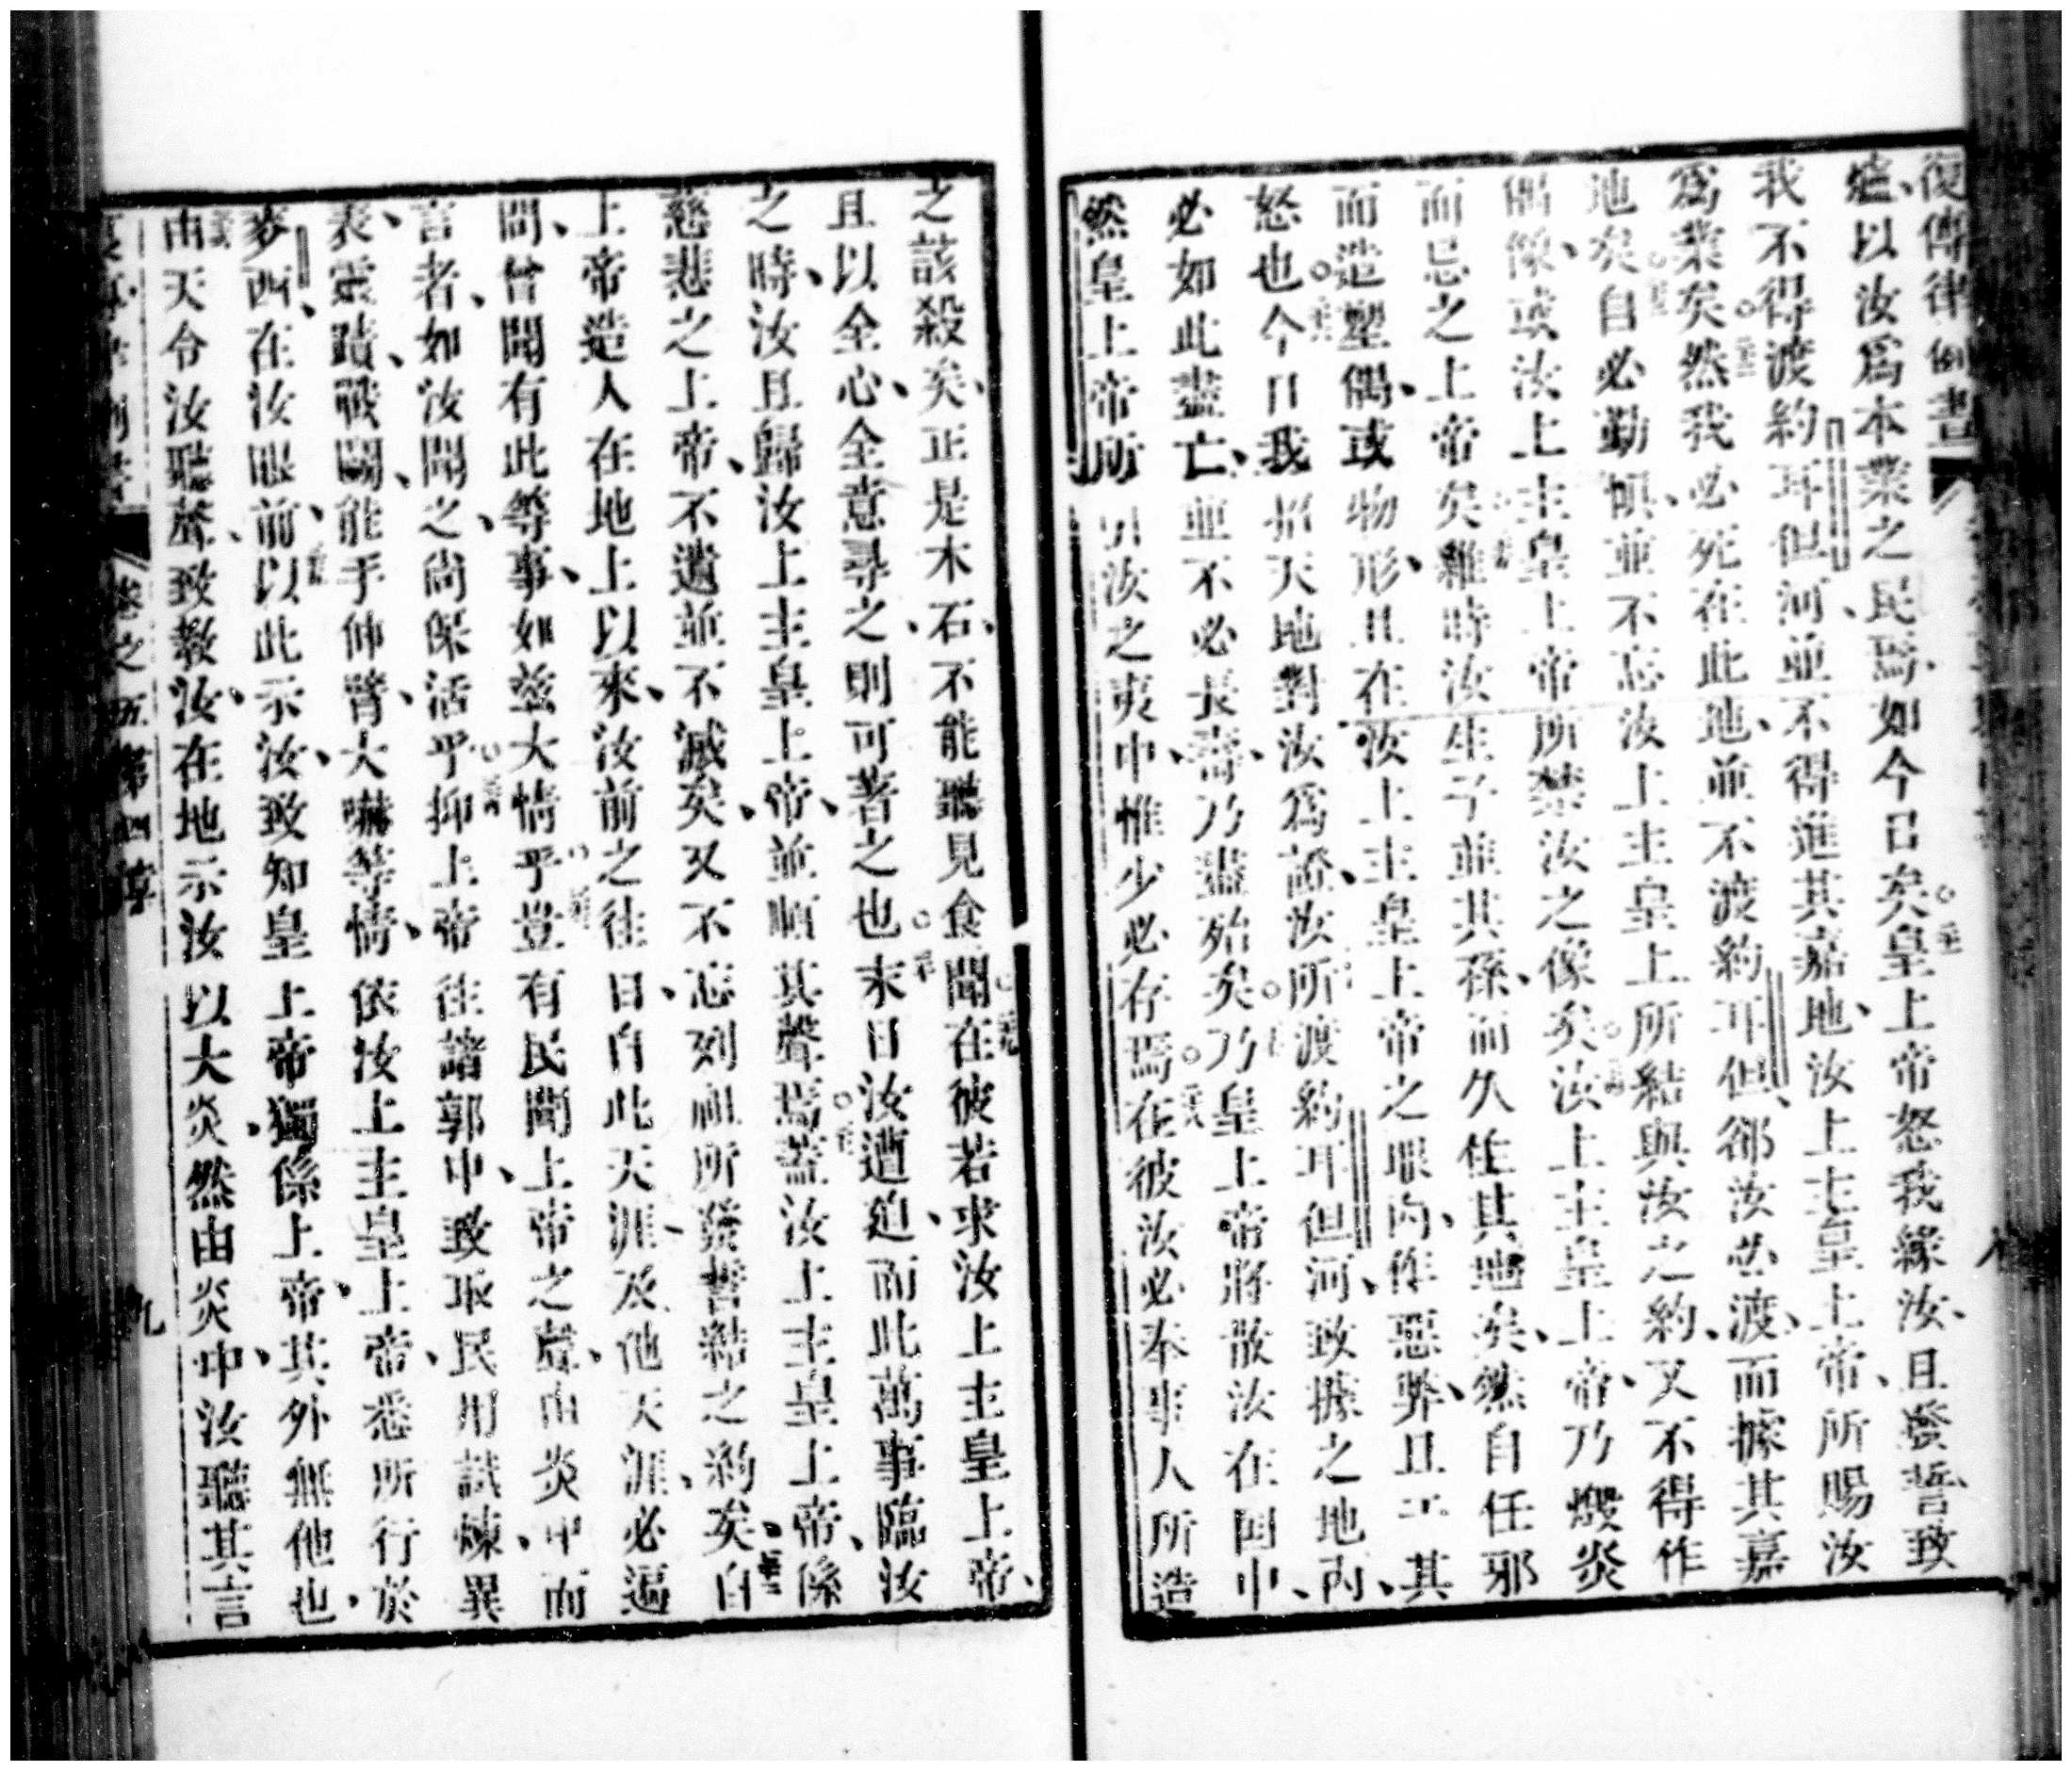 復傳律例書
爐、以汝爲本業之民焉、如今日矣。皇上帝怒我緣汝、且發誓致
我不得渡約耳但河、並不得進其嘉地、汝上主皇上帝、所賜汝
爲業矣。然我必死在此地、並不渡約耳但、郤汝必渡、而據其嘉
地矣。自必勤愼、並不忘汝上主皇上所結與汝之約、又不得作
偶像、或汝上主皇上帝所禁汝之像矣。汝上主皇上帝、乃燬炎
而忌之上帝矣。雖時汝生子並其孫、而久住其地矣、然自任邪
而造塑偶、或物形、且在汝上主皇上帝之眼內、作惡弊、且干其
怒也。今日我招天地對汝爲證、汝所渡約耳但河、致據之地內、
必如此盡亡、並不必長壽、乃盡殆矣。乃皇上帝將散汝在囯中、
然皇上帝所引汝之夷中、惟少必存焉。在彼汝必奉事人所造
之該殺矣、正是木石、不能聽見食聞在彼若求汝上主皇上帝、
且以全心、全意尋之、則可著之也。末日汝遭廹、而此萬事臨汝
之時、汝且歸汝上主皇上帝、並順其聲焉。蓋汝上主皇上帝、係
慈悲之上帝、不遺並不滅矣、又不忘列祖所發誓結之約矣。自
上帝造人在地上以來、汝前之往日、自此天涯、及他天涯、必逼
問、曾聞有此等事、如茲大情乎。豈有民聞上帝之聲、由炎中而
言者、如汝聞之、尚保活乎。抑上帝往諸郭中、致取民用試煉、異
表、靈蹟、戰鬭、能手伸臂、大嚇等情、依汝上主皇上帝、悉所行於
麥西、在汝眼前、以此示汝、致知皇上帝獨係上帝、其外無他也、
由天令汝聽聲、致敎汝、在地示汝以大炎、然由炎中、汝聽其言
卷之五 第四章
九